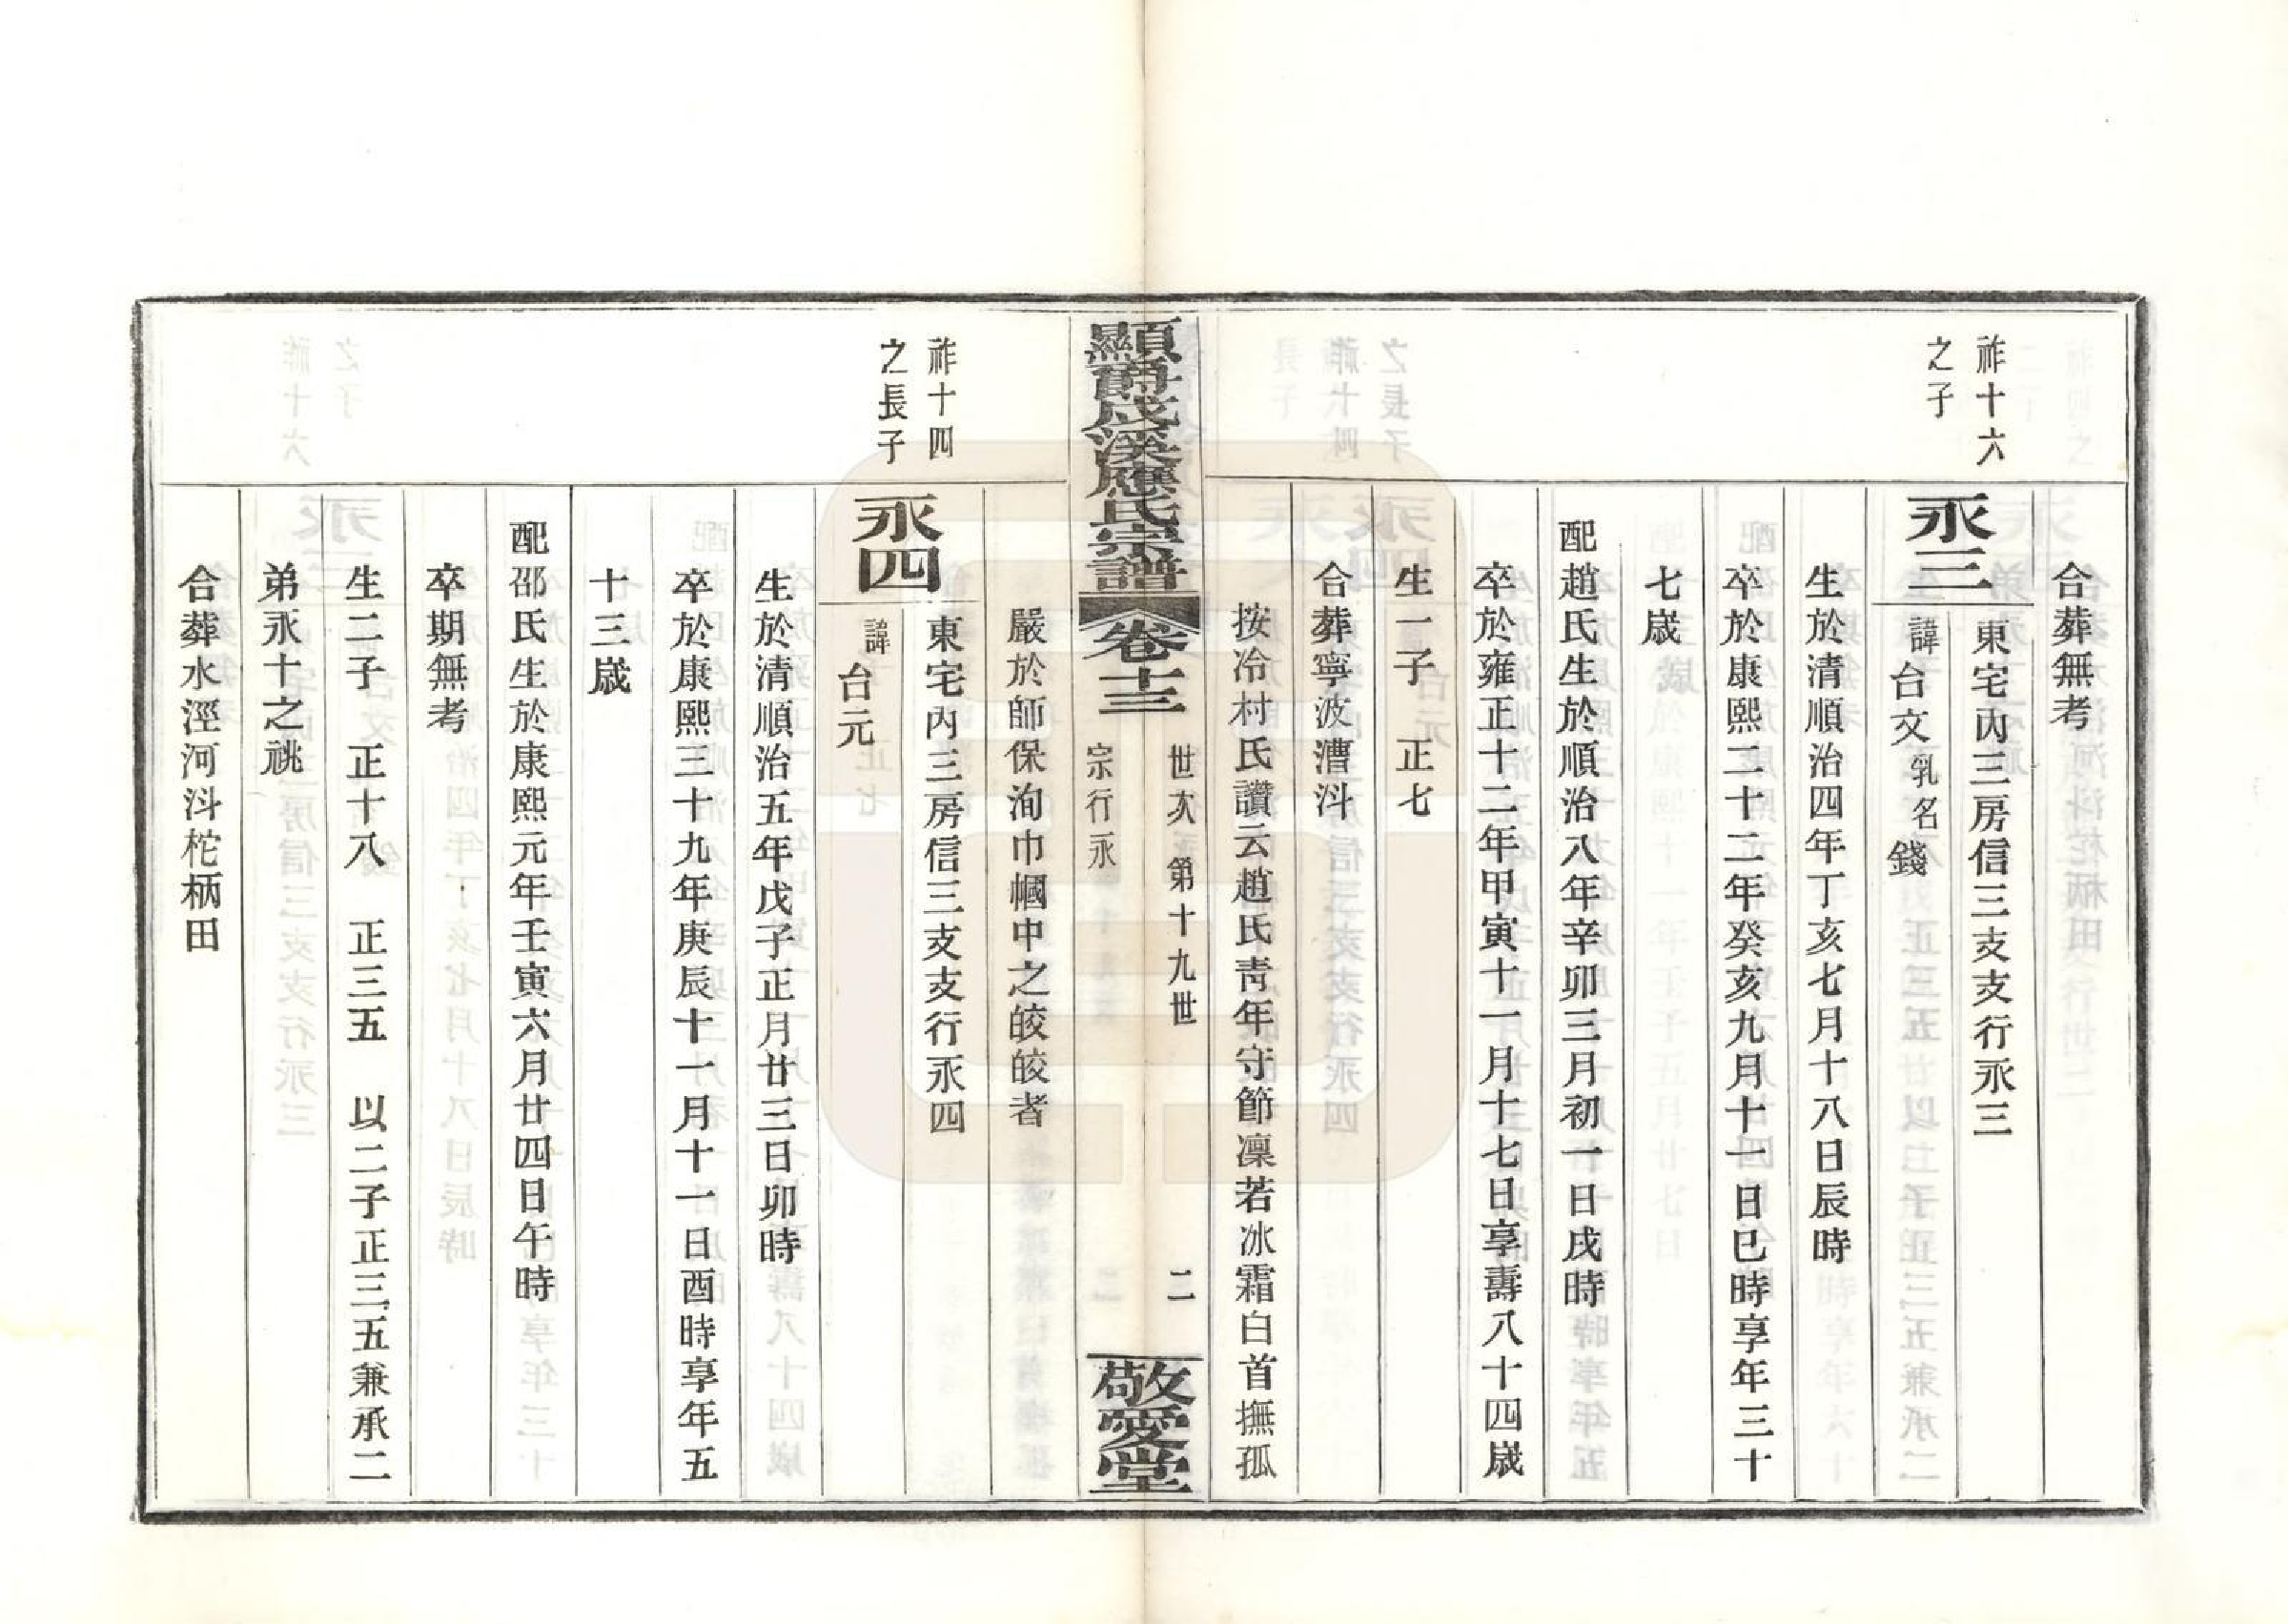 合葬無考
祚十六
之子
永三
東宅內三房信三支支行永三
諱台文乳名錢
生於清順治四年丁亥七月十八日辰時
卒於康熙二十二年癸亥九月十一日巳時享年三十
七歲
配趙氏生於順治八年辛卯三月初一日戌時
卒於雍正十二年甲寅十一月十七日享壽八十四歲
生一子 正七
合葬寧波漕㪷
按冷村氏讚云趙氏靑年守節凜若冰霜白首撫孤
顯爵戍溪應氏宗譜 卷十三
世次 第十九世
宗行永
二
敬愛堂
嚴於師保洵巾幗中之皎皎者
祚十四
之長子
永四
東宅內三房信三支支行永四
諱台元
生於清順治五年戊子正月廿三日卯時
卒於康熙三十九年庚辰十一月十一日酉時享年五
十三歲
配邵氏生於康熙元年壬寅六月廿四日午時
卒期無考
生二子 正十八 正三五 以二子正三五兼承二
弟永十之祧
合葬水涇河㪷柁柄田